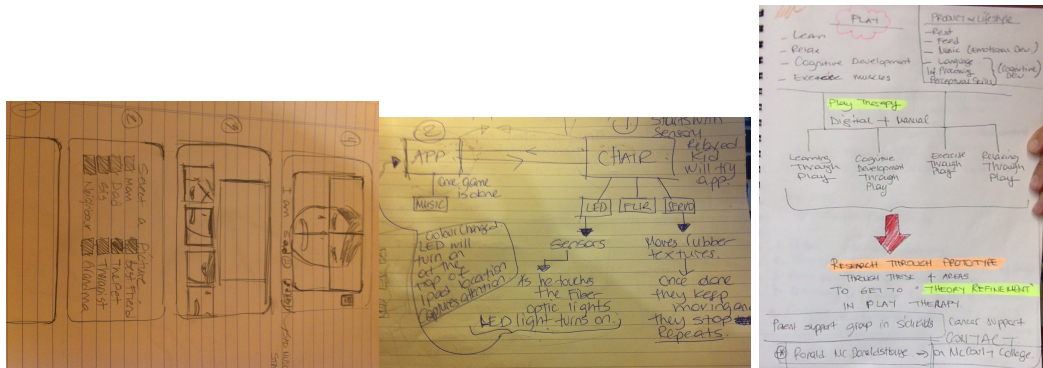 1
2
Select a Picture
Mom
Dad
Sis
Neighbor
Best Friend
The Pet
Therapist
Grandma
3
4
I am
Sad
2
APP
one game
is done
MUSIC
1
Starts with
Sensory
CHAIR
Relaxed
Kid
will try
app.
LED
FLIR
SERVO
Colour changed
LED will
turn on
at the
top of
ipad location
Captures attention
Sensors
As he touches
the Fiber
optic lights
LED light turns on.
Moves rubber
textures.
Once done
they keep
moving and
they stop
Repeats.
PLAY
- Learn
- Relax
- Cognitive Development
- Exercise muscles
PRODUCT w Lifestyle
- Rest
- Feed
- Music (emotional Dev.)
- Language
Processing
Perceptual Skill
(Cognitive
DEV
Play Therapy
Digital + Manual
Learning
Through
Play
Cognitive
Development
Through
Play
Execute
Through
Play
Relaxing
Through
Play
RESEARCH THROUGH PROTOTYPE
THROUGH THESE 4 AREAS
TO GET TO "THEORY REFINEMENT"
IN PLAY THERAPY.
Parent support group in schools
Cancer support
- CONTACT
Ronald Mc Donaldshouse → on McCaul College.